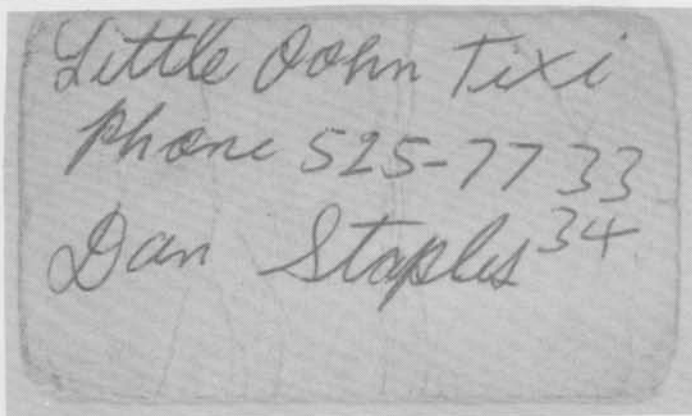 Little John Tixi
Phone 525-7733
Dan Staples 34